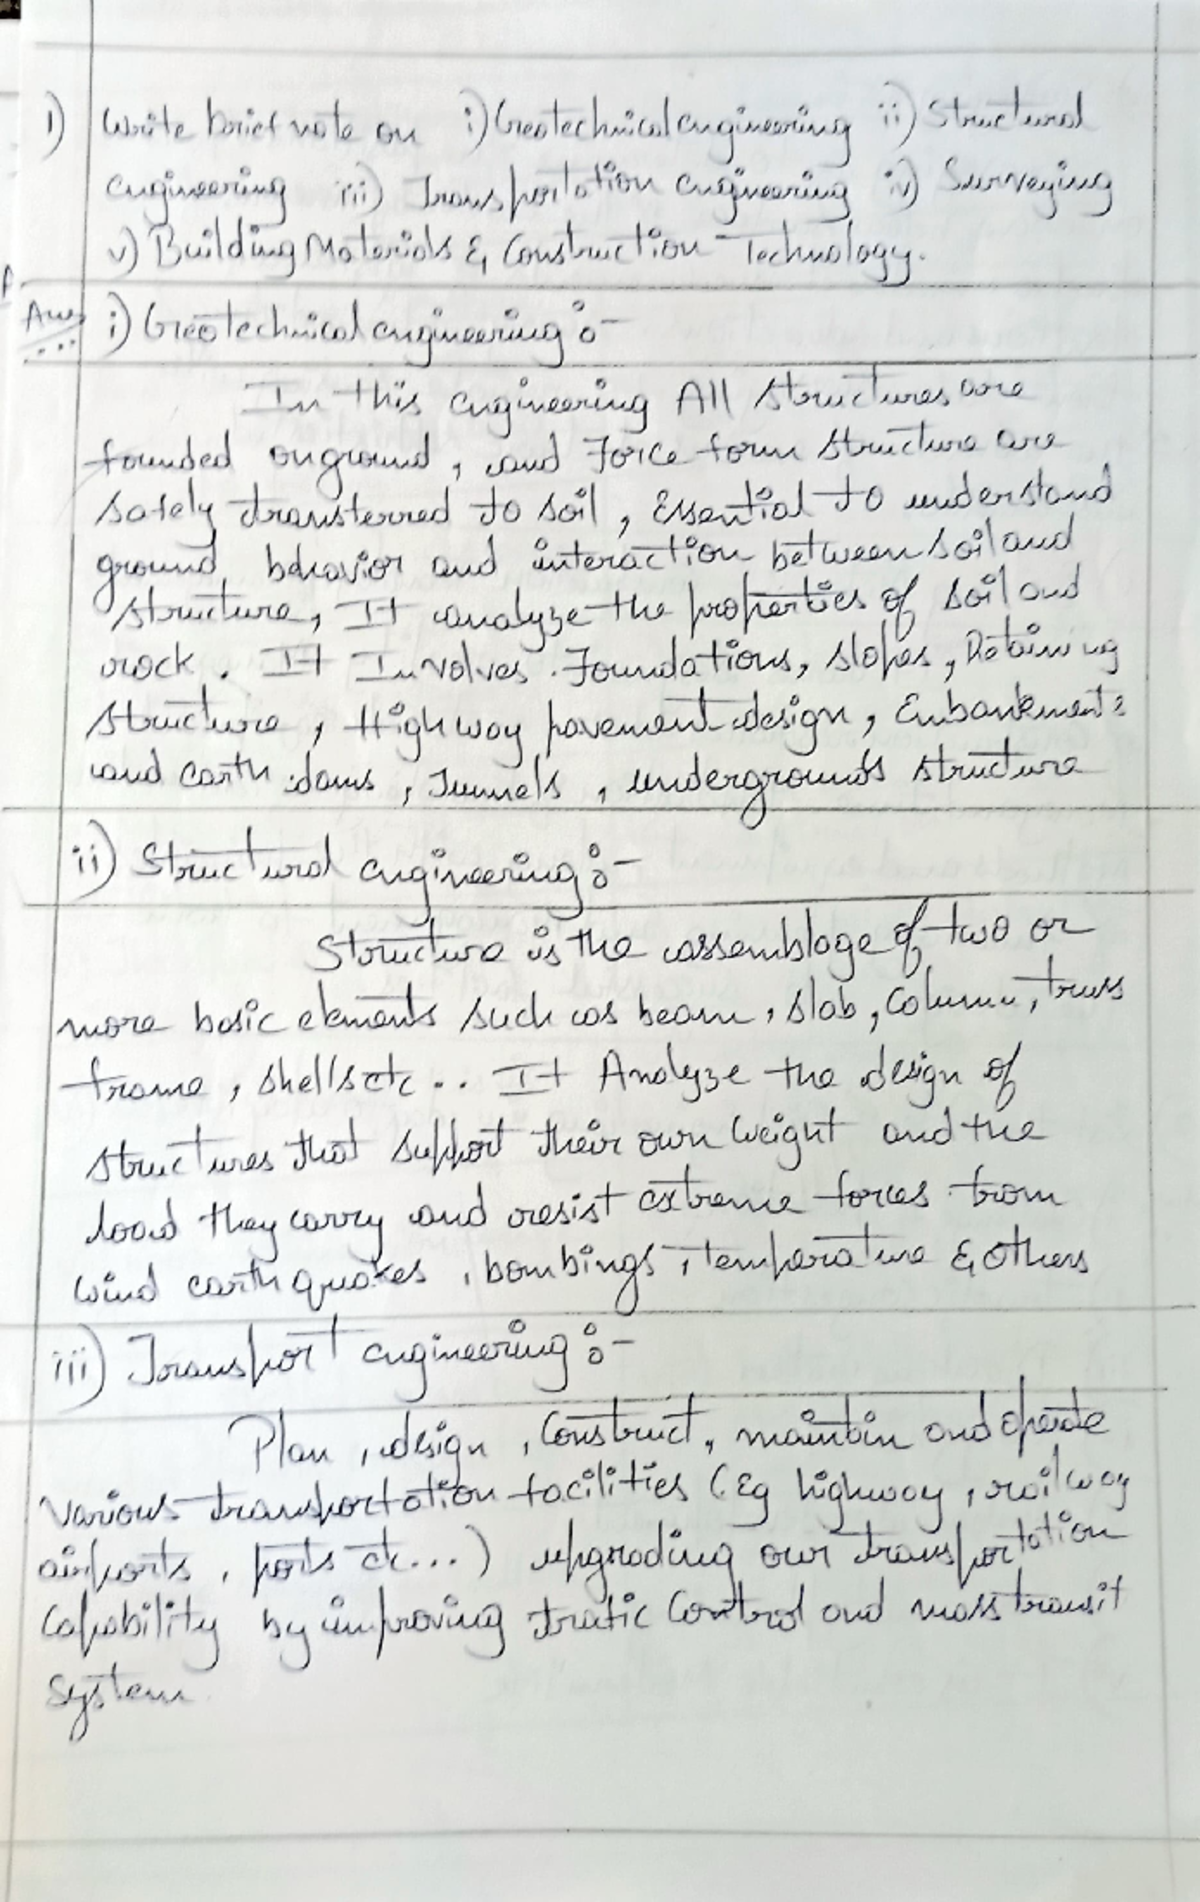 1) Write brief note on i) Geotechnical engineering ii) Structural
engineering iii) Transportation engineering iv) Surveying
v) Building Materials & Construction Technology.
Ans i) Geotechnical engineering :-
In this engineering All structures are
founded on ground, and Force form structure are
safely transferred to soil, Essential to understand
ground behavior and interaction between soil and
structure, It analyze the properties of soil and
rock. It Involves Foundations, slopes, Retaining
structure, Highway pavement design, Embankments
and earth dams, Tunnels, undergrounds structure
ii) Structural engineering :-
Structure is the assemblage of two or
more basic elements such as beam, slab, Column, truss
frame, shells etc .. It Analyze the design of
structures that support their own weight and the
load they carry and resist extreme forces from
wind earthquakes, bombings, temperature & others
iii) Transport engineering :-
Plan, design, Construct, maintain and operate
various transportation facilities (Eg highway, railway
airports, ports etc...) upgrading our transportation
Capability by improving trafic Control and mass transit
System